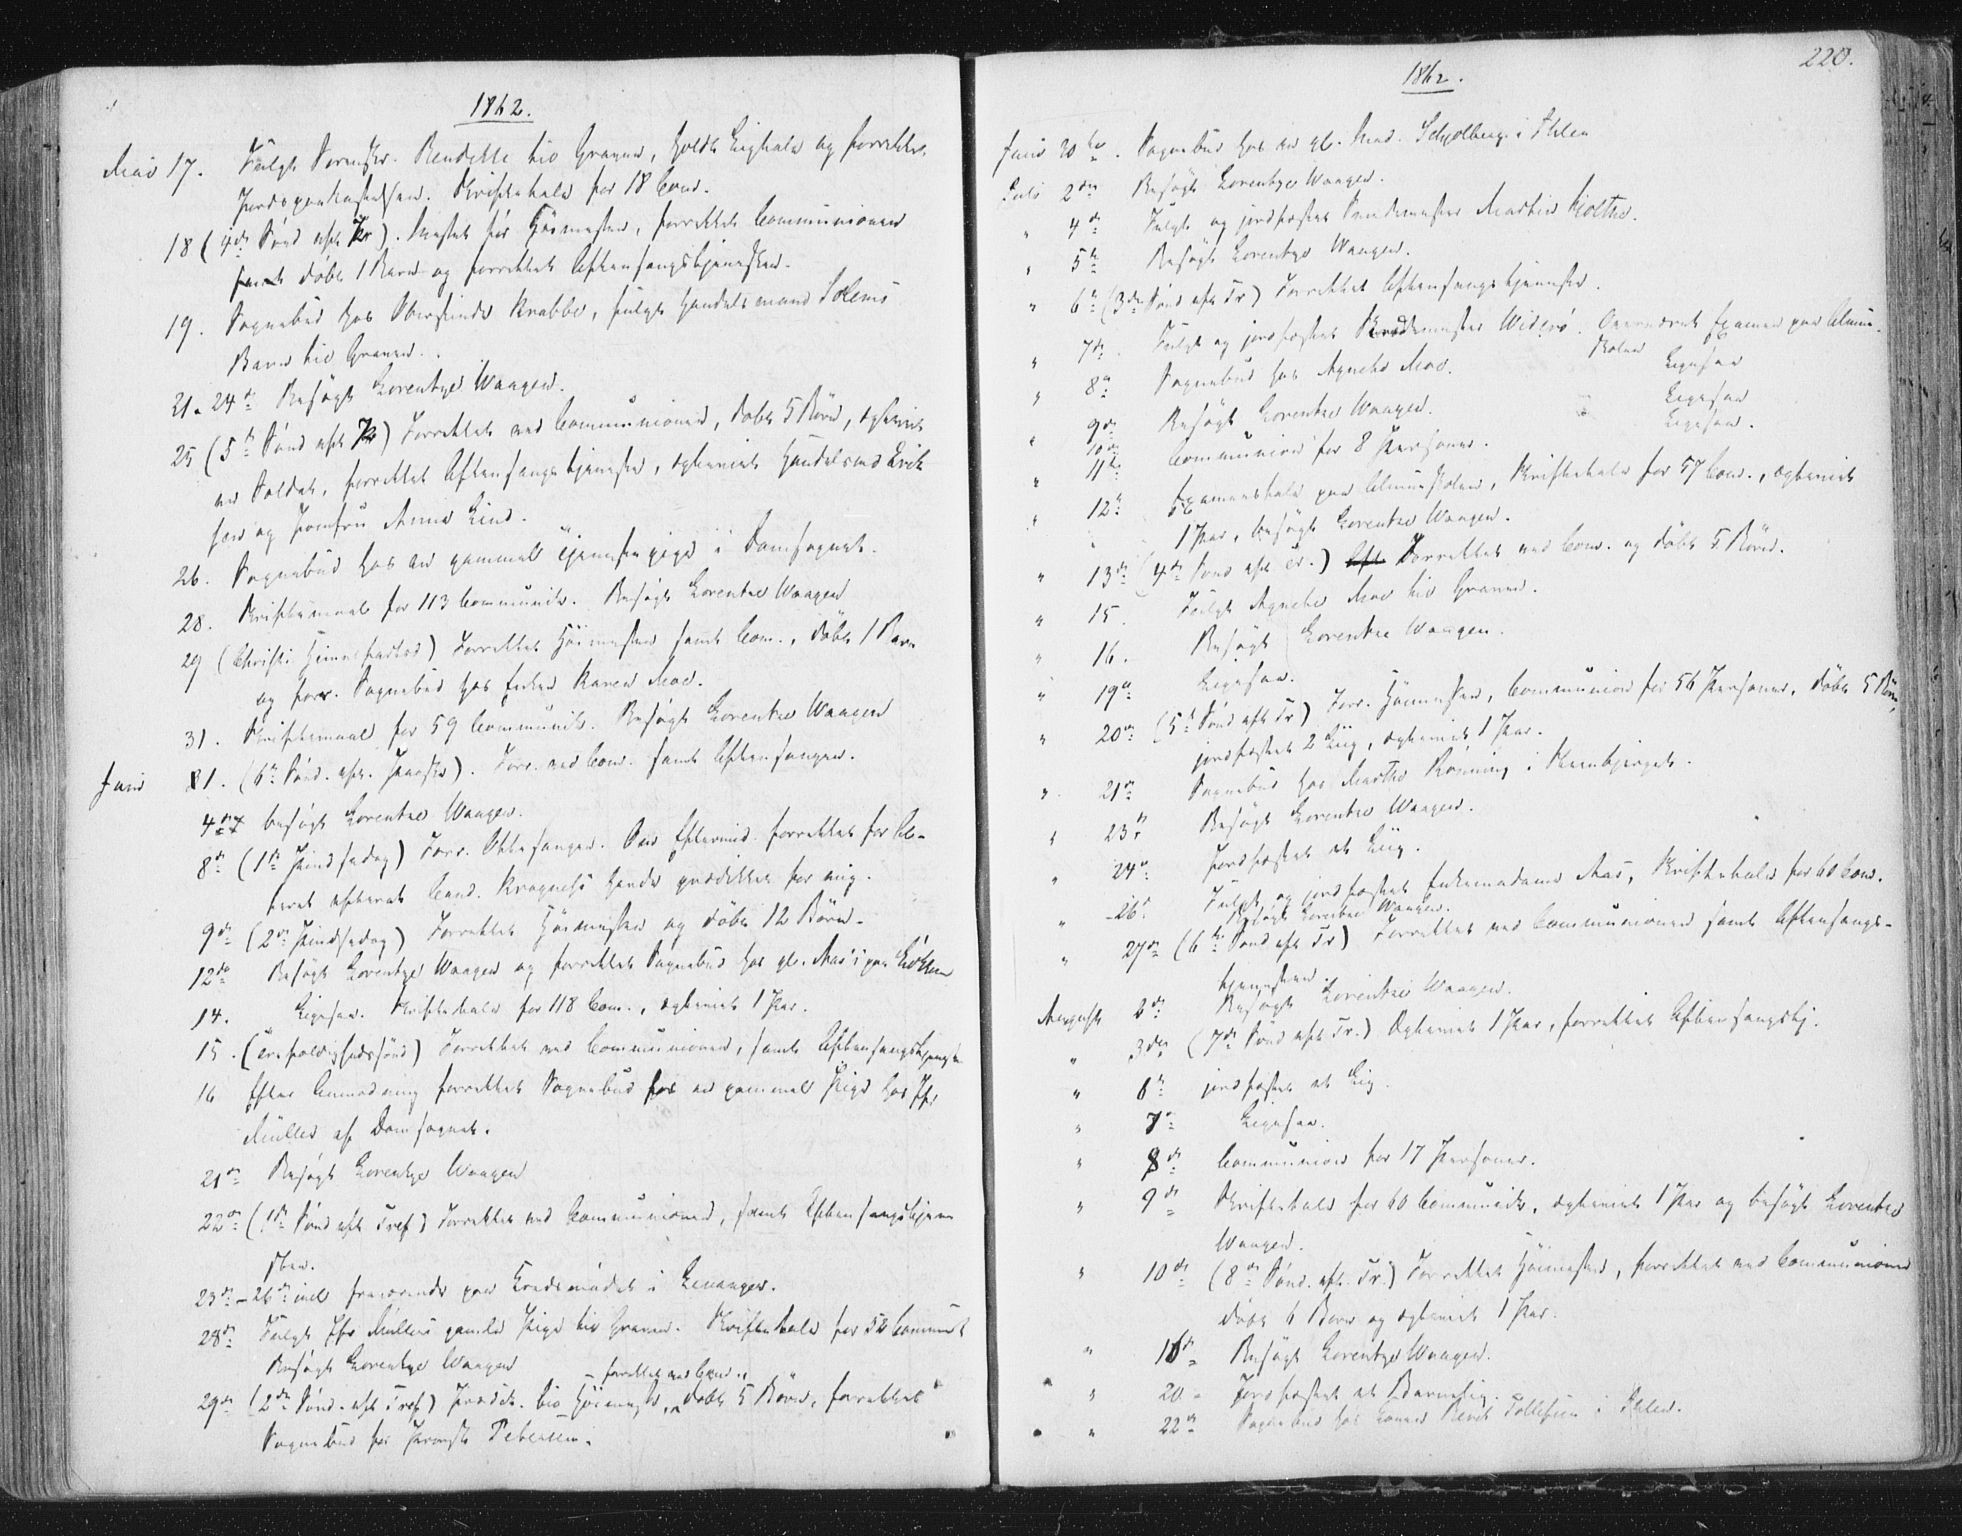 1862.
Mai 17. Fulgt Bendikte til Graven, holdt Ligtale og forrettet
Jordpaakastelsen. Skriftetale for 18 Com.
18 (4de Sønd. eft. P.). Messet før Høimessen, forrettet Communionen
samt døbt 1 Barn og forrettet Aftensangstjenesten.
19. Sognebud hos Krabbe, fulgt Handelsmand Solems
Barn til Graven.
21-24de Besøgt Lorentze Waagen.
25 (5te Sønd. eft. P) Forrettet ved Communionen, døbt 5 Børn, ægteviet
en Soldat, forrettet Aftensangstjenesten, ægteviet Handelsmd Erik
sen og Jomfru Anna Lind.
26. Sognebud hos en gammel Tjenestepige i Domsognet.
28. Skriftemaal for 113 Communik. Besøgt Lorentze Waagen
29 (Christi Himmelfartsd) Forrettet Høimessen samt Com., døbt 1 Barn
og forr. Sognebud hos Enken Karen Moe.
31. Skriftemaal for 59 Communik. Besøgt Lorentze Waagen
Juni 1. (6te Sønd. eft. Paaske). Forr. ved Com. samt Aftensangen.
4de besøgt Lorentze Waagen.
8de (1ste Pindsedag) Forr. Ottesangen. Om Eftermid. forrettet for Al-
teret efterat Cand. havde prædiket for mig.
9de (2den Pindsedag) Forrettet Høimessen og døbt 12 Børn.
12te Besøgt Lorentze Waagen og forrettet Sognebud hos gl. paa
14. Ligesaa. Skriftetale for 118 Com., ægteviet 1 Par.
15. (Trefoldighedssønd) Forrettet ved Communionen, samt Aftensangstjeneste
16 Efter Anmodning forrettet Sognebud hos en gammel Pige hos Jfr
Müller af Domsognet.
21de Besøgt Lorentze Waagen
22de (1ste Sønd eft Tref) Forrettet ved Communionen, samt Aftensangstjene
sten.
23de-26de incl fraværende paa i Levanger.
28de Fulgt Jfr Müllers gamle Pige til Graven. Skriftetale for 52 Communik
Besøgt Lorentze Waagen
forrettet ved Com.
29de (2den Sønd. eft Tref) Prædik. til Høimesse, døbt 5 Børn, forrettet
Sognebud hos Petersen.
220.
1862.
Juni 30te. Sognebud hos en gl. Mad. Schjølberg i Ihlen
Juli 2den Besøgt Lorentze Waagen.
" 4de Fulgt og jordfæstet Martin Holthe.
" 5te Besøgt Lorentze Waagen.
" 6te (3die Sønd eft Tr) Forrettet Aftensangstjenesten.
" 7de Fulgt og jordfæstet Widerö. Overværet Examen paa Almue-
skolen
" 8de Sognebud hos Agnethe Moe. Ligesaa
" 9de Besøgt Lorentze Waagen. Ligesaa
10de Ligesaa.
" 11te Communion for 8 Personer.
" 12te Examenstale paa Almueskolen, Skriftetale for 57 Com., ægteviet
1 Par, besøgt Lorentze Waagen.
" 13de (4de Sønd eft Tr.) Forrettet ved Com. og døbt 5 Børn.
" 15. Fulgt Agnethe Moe til Graven.
" 16. Besøgt Lorentze Waagen.
" 19de Ligesaa.
" 20de (5te Sønd eft Tr) Forr. Høimessen, Communion for 56 Personer, døbt 5 Børn,
jordfæstet 2 Liig, ægteviet 1 Par.
" 21de Sognebud hos Marthe Rønning i Steenbjerget.
" 23de Besøgt Lorentze Waagen.
" 24de Jordfæstet et Liig.
" 26de Fulgt og jordfæstet Enkemadame Mas, Skriftetale for 60 Com.
Besøgt Lorentze Waagen.
" 27de (6te Sønd eft Tr) Forrettet ved Communionen samt Aftensangs-
tjenesten.
August 2de Besøgt Lorentze Waagen.
" 3die (7de Sønd eft Tr.) Ægteviet 1 Par, forrettet Aftensangstj.
" 6te jordfæstet et Liig.
" 7de Ligesaa.
" 8de Communion for 17 Personer.
" 9de Skriftetale for 60 Communik., ægteviet 1 Par og besøgt Lorentze
Waagen.
" 10de (8de Sønd. eft. Tr.) Forrettet Høimessen, forrettet ved Communionen
døbt 6 Børn og ægteviet 1 Par.
" 16de Besøgt Lorentze Waagen.
" 20 - Jordfæstet et Barnelig.
" 22de Sognebud hos Tollefsen i Ihlen.